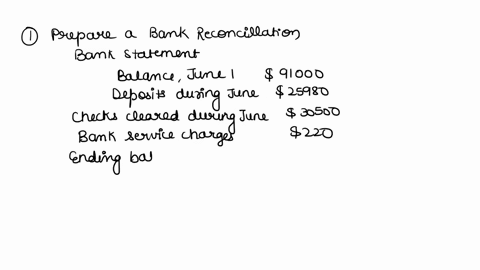 ① Prepare a Bank Reconcillation,
Bank Statement
Balance, June 1 $ 91000
Deposits during June $ 25980
Checks cleared during June $ 30500
Bank service charges $ 220
Ending bal